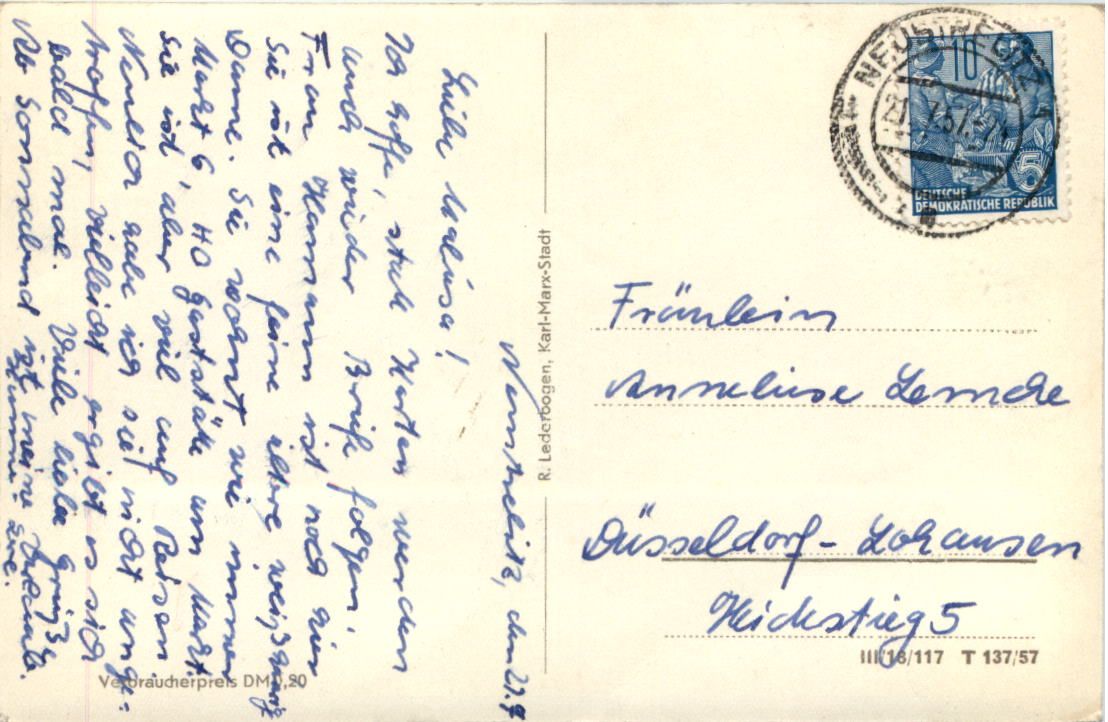 Neustrelitz, den 21.9
Liebe Malusa!
Ich hoffe, statt Karten werden
auch wieder Briefe folgen.
Frau Hamann ist noch hier
Sie ist eine feine ältere weißhaarige
Dame. Sie wohnt wie immer
Markt 6, HO Gaststätte am Markt.
Sie ist aber viel auf Reisen.
Neulich habe ich sie nicht ange-
troffen, vielleicht ergibt es sich
bald mal. Viele liebe Grüße
Ab Sonnabend ist meine Schule.
Hanne-Lore.
NEUSTRELITZ
10
5
DEUTSCHE
DEMOKRATISCHE REPUBLIK
R. Lederbogen, Karl-Marx-Stadt
Fräulein
Anneliese Lemcke
Düsseldorf-Lohausen
Heidestieg 5
III/18/117 T 137/57
Verbraucherpreis DM 0,20